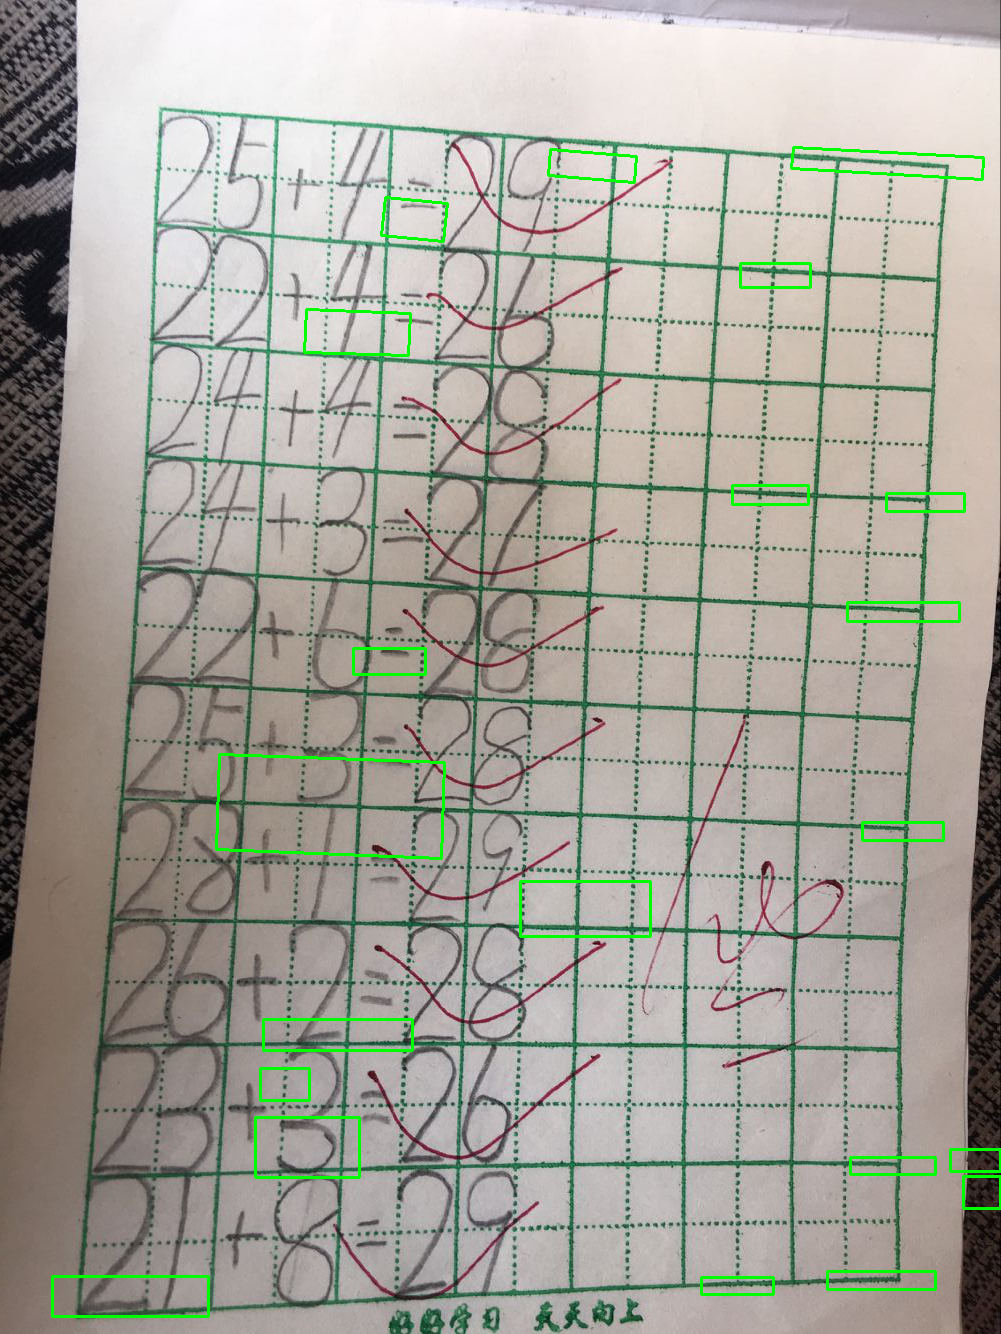 25+4=29
22+4=26
24+4=28
24+3=27
22+6=28
25+3=28
28+1=29
26+2=28
23+3=26
21+8=29
好好学习 天天向上